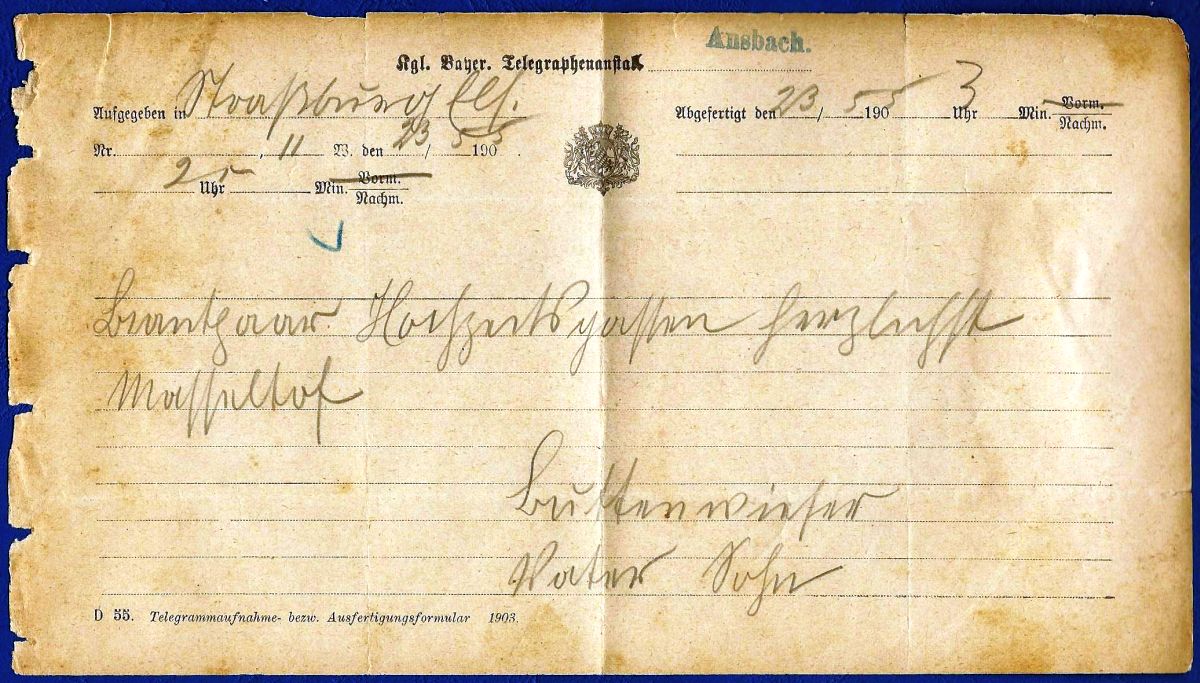 Ansbach.
Kgl. Bayer. Telegraphenanstalt
Aufgegeben in Straßburg Els.
Abgefertigt den 23/5 1905 3 Uhr Min. Vorm. Nachm.
Nr. , 11 W. den 23/5 1905
25 Uhr Min. Vorm. Nachm.
Brautpaar Hochzeitsgassen herzlichst
Masseltof
Buttenwieser
Vater Sohn
D 55. Telegrammaufnahme- bezw. Ausfertigungsformular 1903.